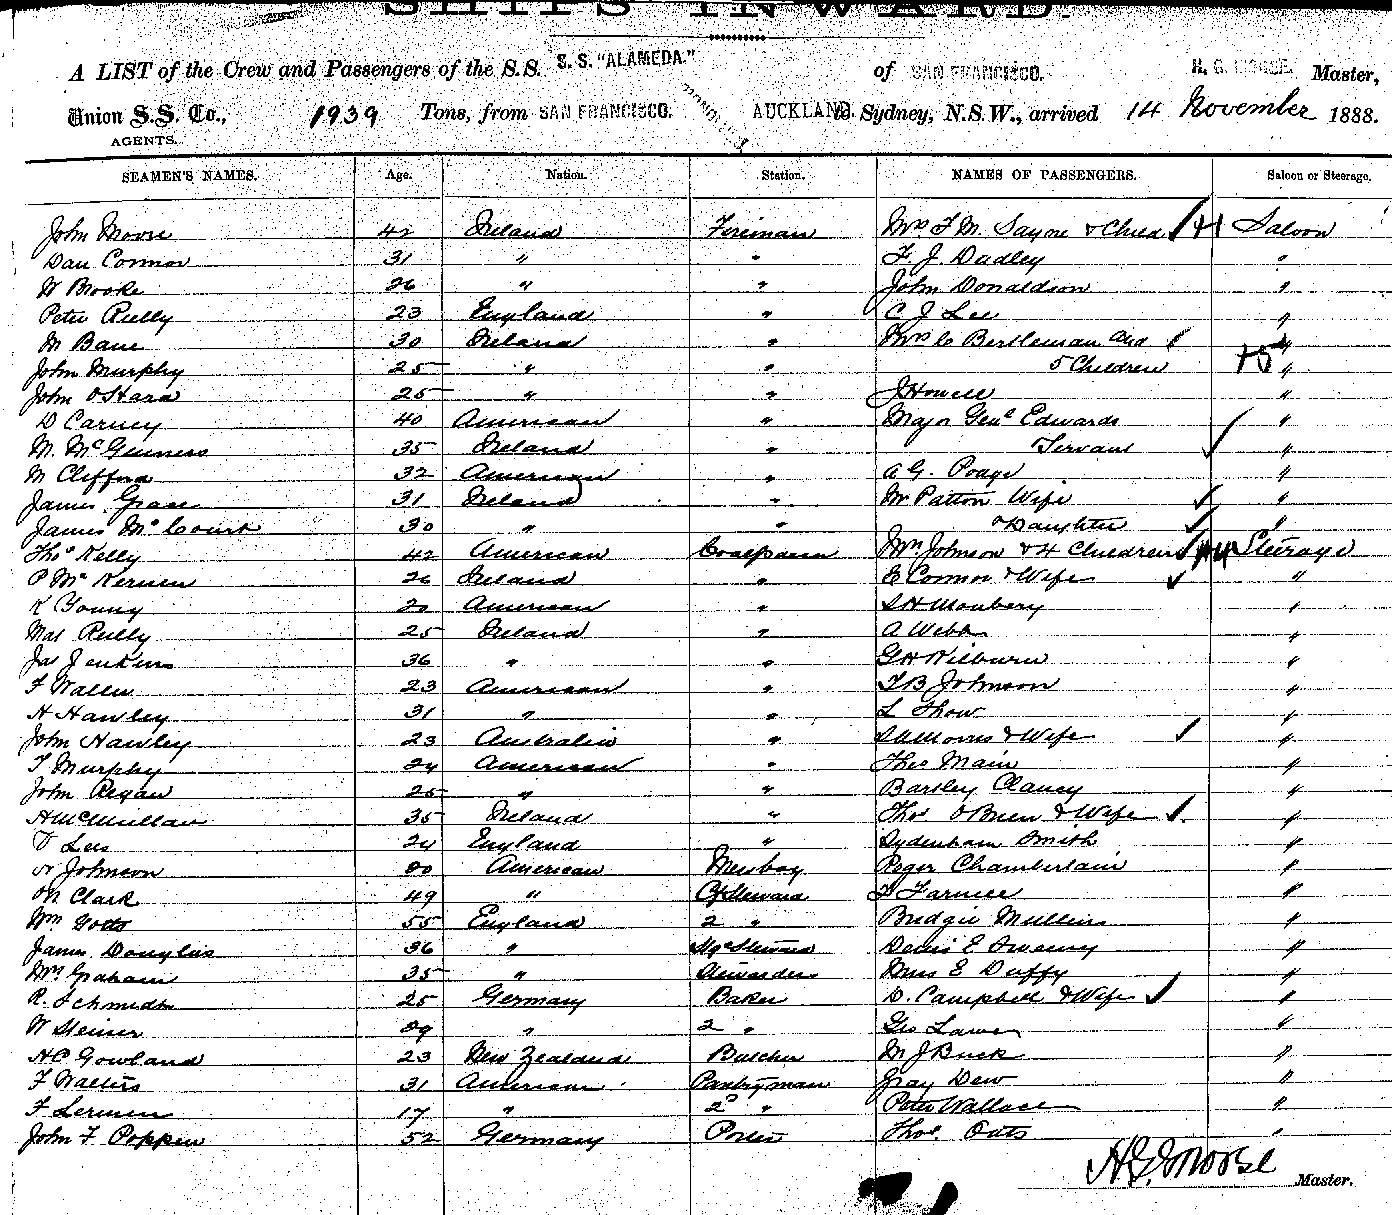 SHIPS INWARD.
A LIST of the Crew and Passengers of the S.S. S. S. "ALAMEDA." of SAN FRANCISCO. H. G. MORSE. Master,
Union S.S. Co., 1939 Tons, from SAN FRANCISCO. AUCKLAND. Sydney, N.S.W., arrived 14 November 1888.
AGENTS.
SEAMEN'S NAMES. Age. Nation. Station. NAMES OF PASSENGERS. Saloon or Steerage.
John Moore 42 Ireland Fireman Mrs F M. Sayne & Child Saloon
Dan Connor 31 " " F. J. Dudley "
W Brooke 26 " " John Donaldson "
Peter Reilly 23 England " C J Lee "
M Bane 30 Ireland " Mrs C Bertleman and "
John Murphy 25 " " 5 Children +5 "
John O'Hara 25 " " J Howell "
D Carney 40 American " Major Genl Edwards "
M. McGinness 35 Ireland " Servant "
M Clifford 32 American " A G. "
James Grace 31 Ireland " Mr Patton Wife "
James McCourt 30 " " & Daughter "
Thos Kelly 42 American Coalpasser Mrs Johnson & 4 Children Steerage
P McKernen 26 Ireland " E Connor & Wife "
K Young 20 American " "
Reilly 25 Ireland " A Webb "
Jas Jenkins 36 " " G H Wilburn "
F Waller 23 American " T B Johnson "
H Hawley 31 " " L Show "
John Hawley 23 Australia " Morris & Wife "
T Murphy 24 American " Thos Main "
John Regan 25 " " Bartley Clancy "
H McMullan 35 Ireland " Thos O'Brien & Wife "
Lees 24 England " Sydenham Smith "
N Johnson American Messboy Roger Chamberlain "
Clark 49 " Cf Steward "
Wm Gotts 55 England 2 " Bridget Mullins "
James Douglas 36 " Steward Denis E Sweeney "
Mrs Graham 35 " Stewardess Miss E Duffy "
R. Schmidt 25 Germany Baker D. Campbell & Wife "
W Steiner 29 " 2 " Geo "
H C Gowland 23 New Zealand Butcher M J Buck "
F Walters 31 American Pantryman Gray Dew "
F Lermen 17 " 2d " Peter Wallace "
John F. Poppen 52 Germany Porter Thos. Outs "
H G Morse Master.